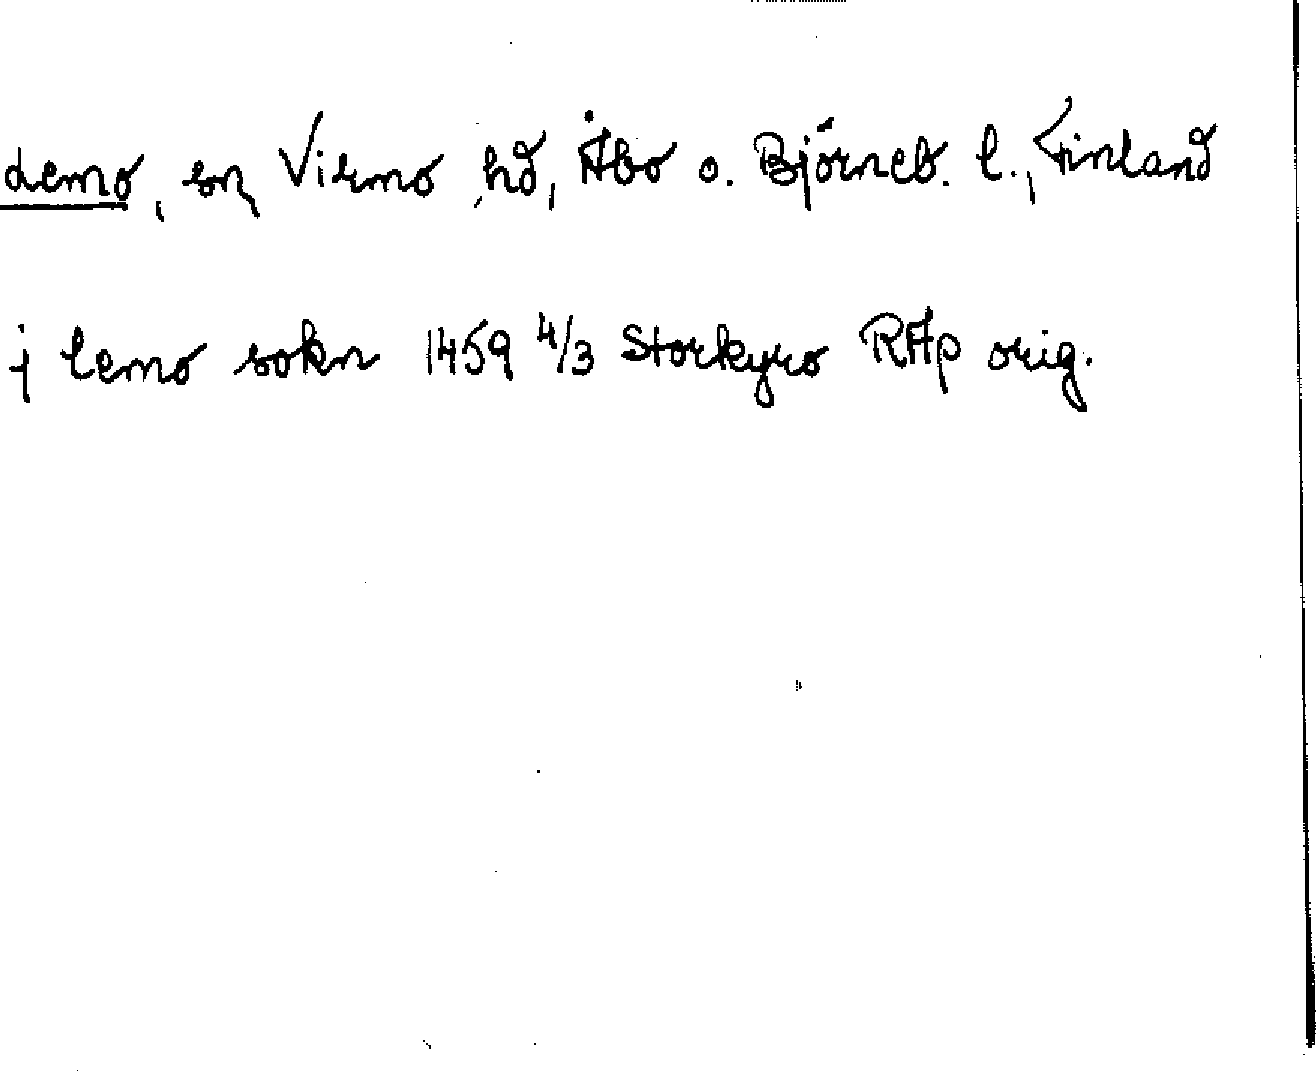 Lemo, sn, Virmo hd, Åbo o. Björneb. l., Finland
j lemo sokn 1459 4/3 Storkyro RAp orig.